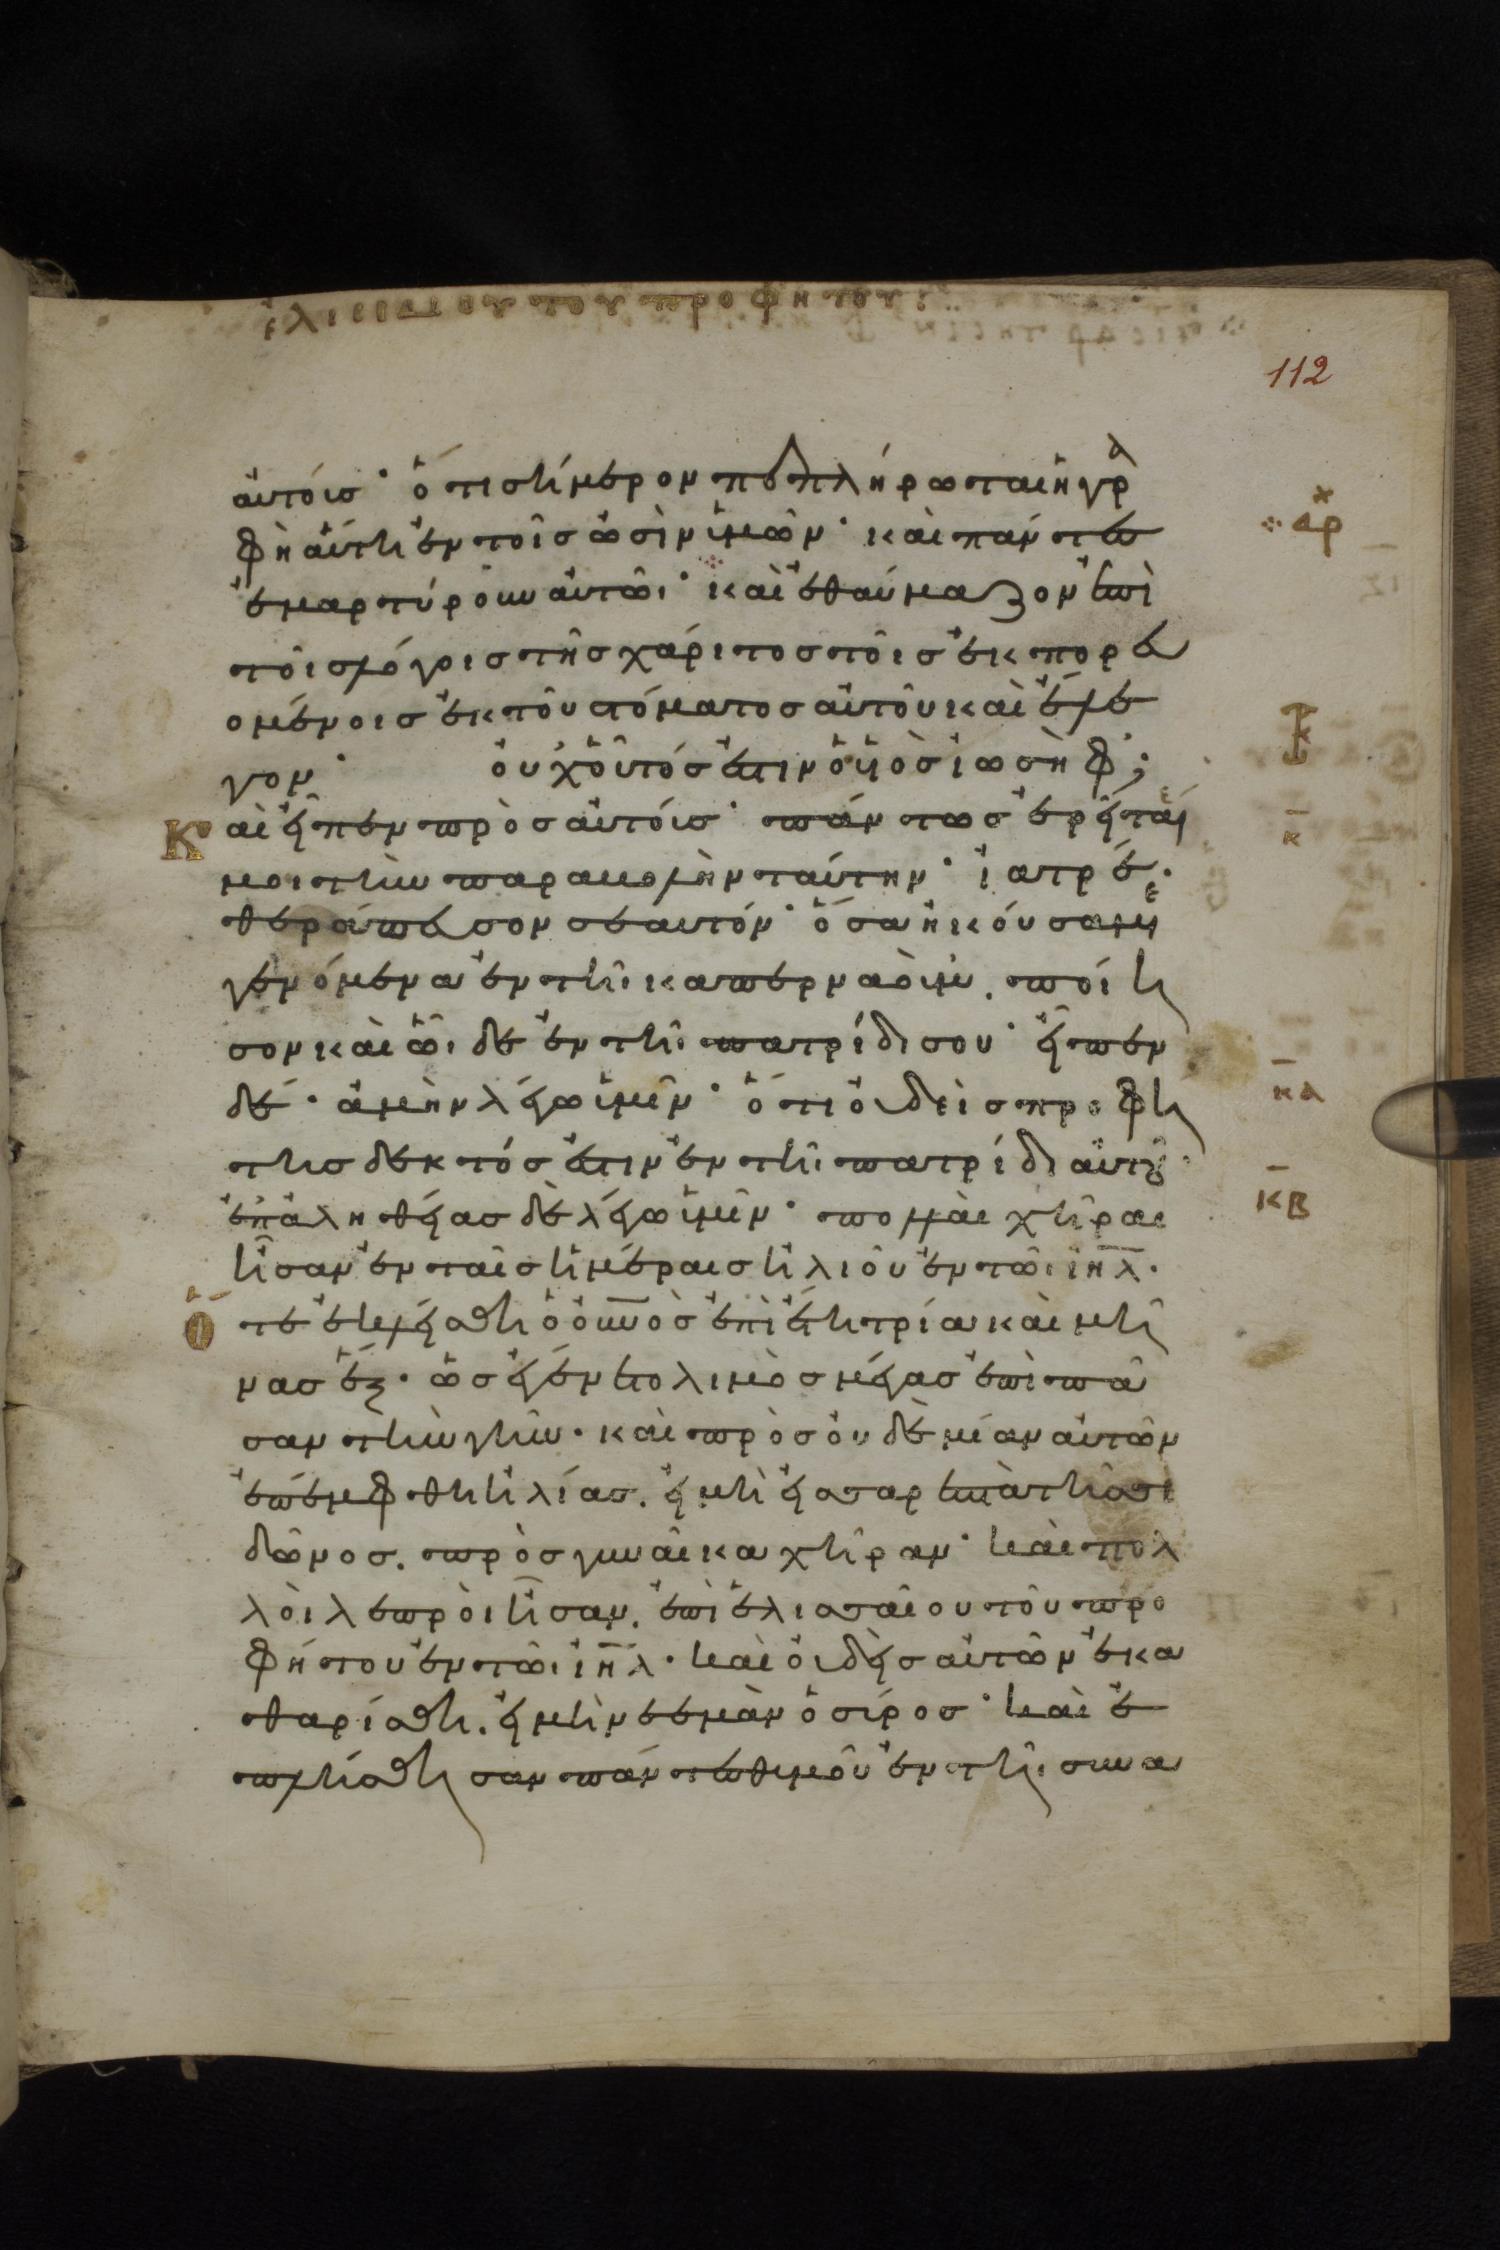 ἐλισσαίου τοῦ προφήτου:
112
αὐτοὺς· ὅτι σήμερον πεπλήρωται ἡ γρα
φὴ αὕτη ἐν τοῖς ὠσὶν ὑμῶν· καὶ πάντες
ἐμαρτύρουν αὐτῶι· καὶ ἐθαύμαζον ἐπὶ
τοῖς λόγοις τῆς χάριτος τοῖς ἐκπορευ
ομένοις ἐκ τοῦ στόματος αὐτοῦ καὶ ἔλε
γον· οὐχ οὗτός ἐστιν ὁ υἱὸς ἰωσὴφ;
Καὶ εἶπεν πρὸς αὐτούς· πάντως ἐρεῖται
μοι τὴν παραβολὴν ταύτην· ἰατρέ·
θεράπευσον σεαυτόν· ὅσα ἠκούσαμε
γενόμενα ἐν τῆι καπερναοὺμ, ποίη
σον καὶ ὧδε ἐν τῆι πατρίδι σου· εἶπεν
δέ· ἀμὴν λέγω ὑμῖν· ὅτι οὐδεὶς προφή
της δεκτός ἐστιν ἐν τῆι πατρίδι αὐτοῦ·
ἐπ' ἀληθείας δὲ λέγω ὑμῖν· πολλαὶ χῆραι
ἦσαν ἐν ταῖς ἡμέραις ἠλιοῦ ἐν τῶι ιηλ·
Ὅτε ἐκλείσθη ὁ οὐνος ἐπὶ ἔτη τρία καὶ μῆ
νας ἕξ· ὡς ἐγένετο λιμὸς μέγας ἐπὶ πᾶ
σαν τὴν γῆν· καὶ πρὸς οὐδεμίαν αὐτῶν
ἐπέμφθη ἠλίας, εἰ μὴ εἰς σαρεπτὰ τῆς σι
δῶνος, πρὸς γυναῖκα χήραν· καὶ πολ
λοὶ λεπροὶ ἦσαν, ἐπὶ ἐλισσαίου τοῦ προ
φήτου ἐν τῶι ιηλ· καὶ οὐδεὶς αὐτῶν ἐκα
θαρίσθη, εἰ μὴ νεεμὰν ὁ σύρος· καὶ ἐ
πλήσθησαν πάντες θυμοῦ ἐν τῆι συνα
αρ
κ
κα
κβ